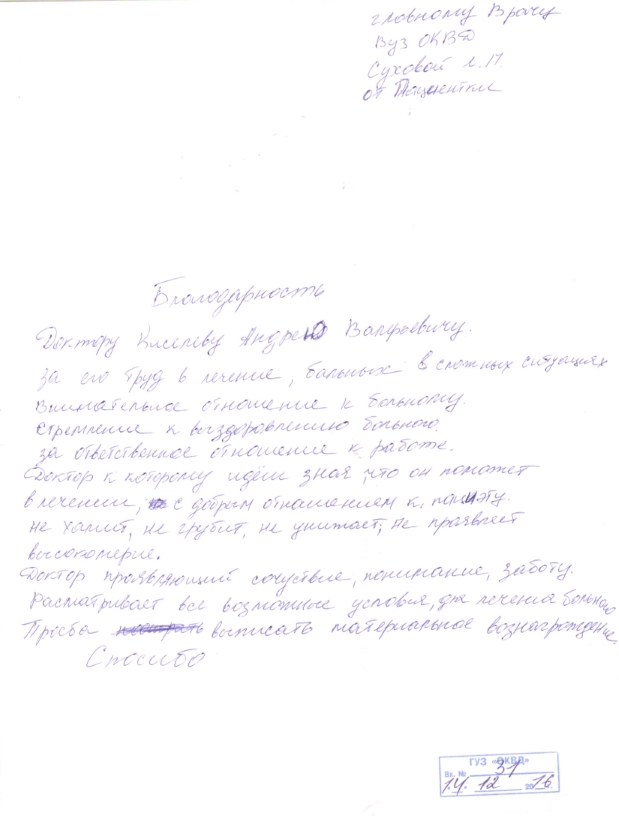 главному Врачу
Вуз ОКВД
Суховой Л.П
от Пациентки
Благодарность
Доктору Киселёву Андрею Валфьевичу.
за его труд в лечение, бальных в сложных ситуациях
Внимательное отношение к больному.
стремление к выздоровлению больного.
за ответственное отношение к работе.
Доктор к которому идём зная, что он поможет
в лечении, с добрым отношением к
не хамит, не грубит, не унижает, не праявляет
высокомерие.
Доктор проявляющий сочуствие, понимание, заботу.
Расматривает все возможные условья, для лечения больного
Прозьба выписать материальное вознагрождение.
Спасибо
ГУЗ «ОКВД»
Вх. № 31
14 12 2016